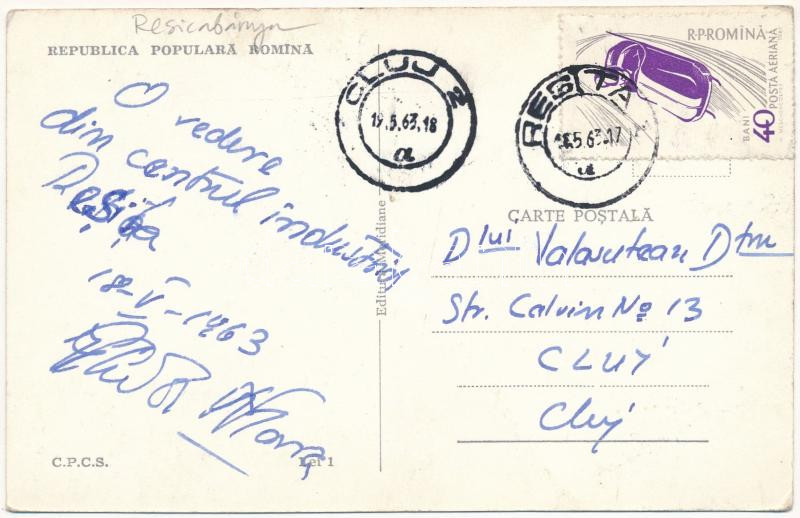 Resicabánya
REPUBLICA POPULARĂ ROMÎNĂ
O vedere
din centrul industrial
Reșița
18-V-1963
C.P.C.S.
Lei 1
Editura Meridiane
CLUJ 2
19.5.63.18
a
REȘIȚA
5.63.17
a
R·P·ROMÎNĂ
POSTA AERIANA
BANI
40
CARTE POȘTALĂ
Dlui Dtru
Str. Calvin No 13
CLUJ
Cluj